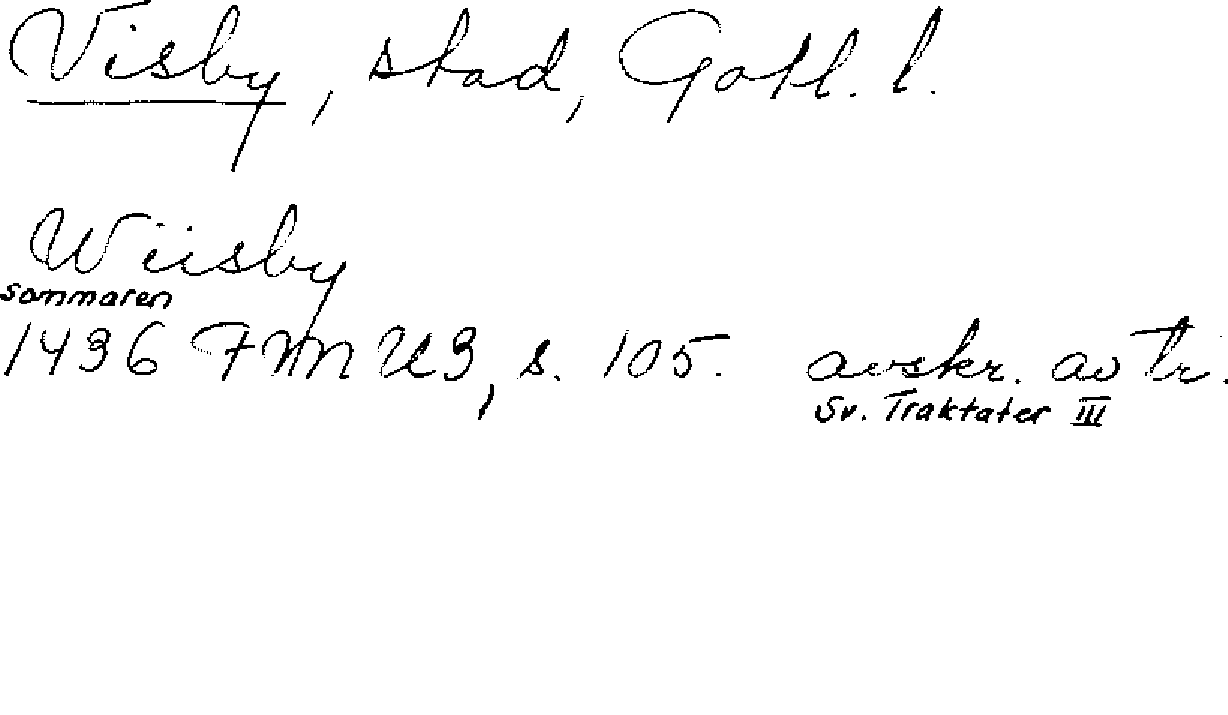 Visby, stad, Gotl. l.
Wiisby
sommaren
1436 FMU 3, s. 105. avskr. av tr.
Sv. Traktater III